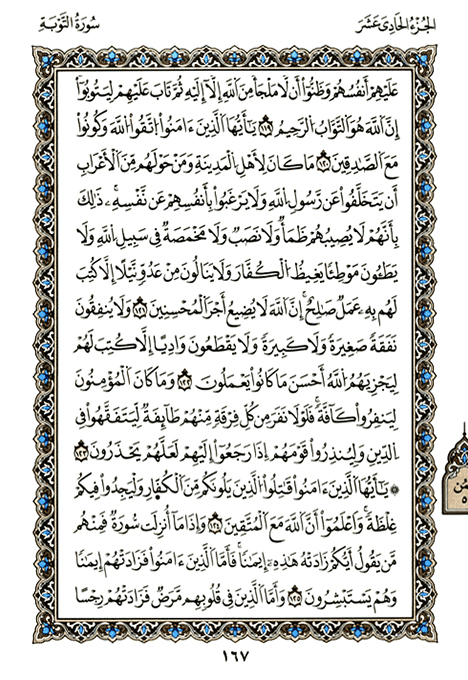 الجُزْءُ الحَادِي عَشَرَ
سُورَةُ التَّوْبَةِ
عَلَيْهِمْ أَنفُسُهُمْ وَظَنُّوٓاْ أَن لَّا مَلْجَأَ مِنَ ٱللَّهِ إِلَّآ إِلَيْهِ ثُمَّ تَابَ عَلَيْهِمْ لِيَتُوبُوٓاْ
إِنَّ ٱللَّهَ هُوَ ٱلتَّوَّابُ ٱلرَّحِيمُ ١١٩ يَٰٓأَيُّهَا ٱلَّذِينَ ءَامَنُواْ ٱتَّقُواْ ٱللَّهَ وَكُونُواْ
مَعَ ٱلصَّٰدِقِينَ ١٢٠ مَا كَانَ لِأَهْلِ ٱلْمَدِينَةِ وَمَنْ حَوْلَهُم مِّنَ ٱلْأَعْرَابِ
أَن يَتَخَلَّفُواْ عَن رَّسُولِ ٱللَّهِ وَلَا يَرْغَبُواْ بِأَنفُسِهِمْ عَن نَّفْسِهِۦ ذَٰلِكَ
بِأَنَّهُمْ لَا يُصِيبُهُمْ ظَمَأٌ وَلَا نَصَبٌ وَلَا مَخْمَصَةٌ فِي سَبِيلِ ٱللَّهِ وَلَا
يَطَـُٔونَ مَوْطِئًا يَغِيظُ ٱلْكُفَّارَ وَلَا يَنَالُونَ مِنْ عَدُوٍّ نَّيْلًا إِلَّا كُتِبَ
لَهُم بِهِۦ عَمَلٌ صَٰلِحٌ إِنَّ ٱللَّهَ لَا يُضِيعُ أَجْرَ ٱلْمُحْسِنِينَ ١٢١ وَلَا يُنفِقُونَ
نَفَقَةً صَغِيرَةً وَلَا كَبِيرَةً وَلَا يَقْطَعُونَ وَادِيًا إِلَّا كُتِبَ لَهُمْ
لِيَجْزِيَهُمُ ٱللَّهُ أَحْسَنَ مَا كَانُواْ يَعْمَلُونَ ١٢٢ وَمَا كَانَ ٱلْمُؤْمِنُونَ
لِيَنفِرُواْ كَآفَّةً فَلَوْلَا نَفَرَ مِن كُلِّ فِرْقَةٍ مِّنْهُمْ طَآئِفَةٌ لِّيَتَفَقَّهُواْ فِي
ٱلدِّينِ وَلِيُنذِرُواْ قَوْمَهُمْ إِذَا رَجَعُوٓاْ إِلَيْهِمْ لَعَلَّهُمْ يَحْذَرُونَ ١٢٣
يَٰٓأَيُّهَا ٱلَّذِينَ ءَامَنُواْ قَٰتِلُواْ ٱلَّذِينَ يَلُونَكُم مِّنَ ٱلْكُفَّارِ وَلْيَجِدُواْ فِيكُمْ
غِلْظَةً وَٱعْلَمُوٓاْ أَنَّ ٱللَّهَ مَعَ ٱلْمُتَّقِينَ ١٢٤ وَإِذَا مَآ أُنزِلَتْ سُورَةٌ فَمِنْهُم
مَّن يَقُولُ أَيُّكُمْ زَادَتْهُ هَٰذِهِۦٓ إِيمَٰنًا فَأَمَّا ٱلَّذِينَ ءَامَنُواْ فَزَادَتْهُمْ إِيمَٰنًا
وَهُمْ يَسْتَبْشِرُونَ ١٢٥ وَأَمَّا ٱلَّذِينَ فِي قُلُوبِهِم مَّرَضٌ فَزَادَتْهُمْ رِجْسًا
١٦٧